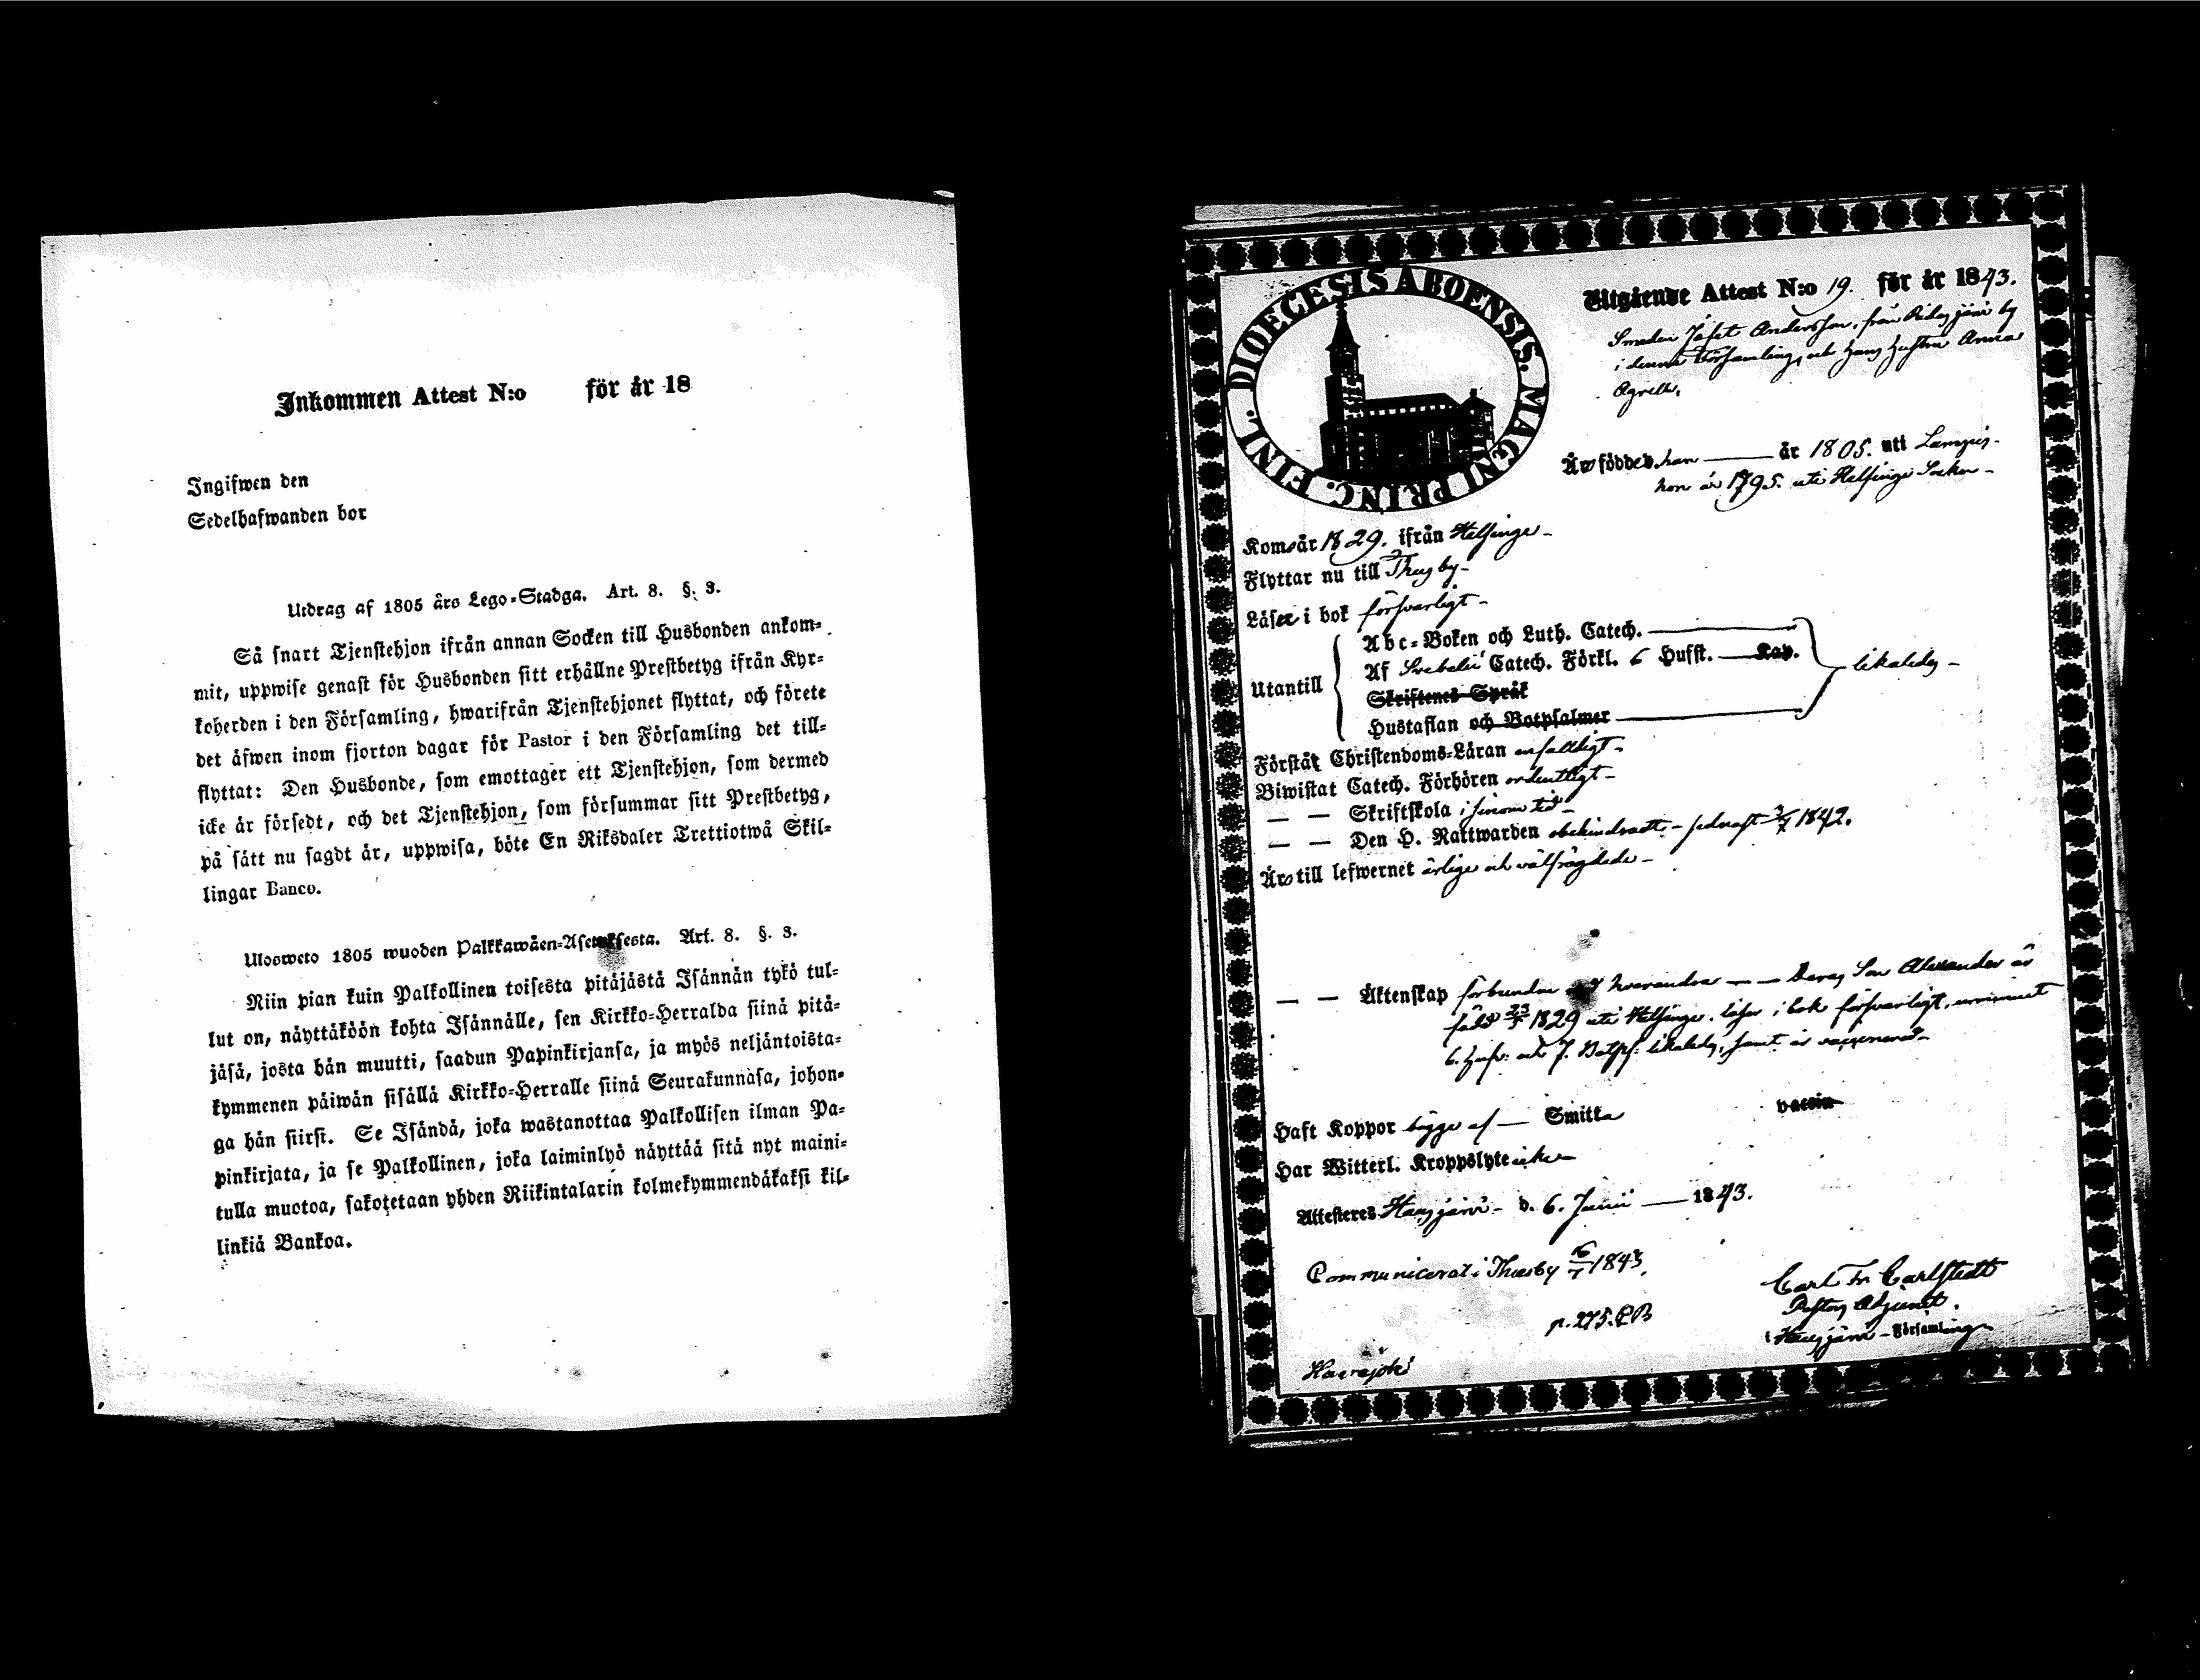 Inkommen Attest N:o för år 18
Ingifwen den
Sedelhafwanden bor
Utdrag af 1805 års Lego-Stadga. Art. 8. §. 3.
Så snart Tjenstehjon ifrån annan Socken till Husbonden ankom-
mit, uppwise genast för Husbonden sitt erhållne Prestbetyg ifrån Kyr-
koherden i den Församling, hwarifrån Tjenstehjonet flyttat, och förete
det äfwen inom fjorton dagar för Pastor i den Församling det till-
flyttat: Den Husbonde, som emottager ett Tjenstehjon, som dermed
icke är försedt, och det Tjenstehjon, som försummar sitt Prestbetyg,
på sätt nu sagdt är, uppwisa, böte En Riksdaler Trettiotwå Skil-
lingar Banco.
Ulosweto 1805 wuoden Palkkawäen-Asetuksesta. Art. 8. §. 3.
Niin pian kuin Palkollinen toisesta pitäjästä Isännän tykö tul-
lut on, näyttäköön kohta Isännälle, sen Kirkko-Herralda siinä pitä-
jäsä, josta hän muutti, saadun Papinkirjansa, ja myös neljäntoista-
kymmenen päiwän sisällä Kirkko-Herralle siinä Seurakunnasa, johon-
ga hän siirsi. Se Isändä, joka wastanottaa Palkollisen ilman Pa-
pinkirjata, ja se Palkollinen, joka laiminlyö näyttää sitä nyt maini-
tulla muotoa, sakotetaan yhden Riikintalarin kolmekymmendäkaksi kil-
linkiä Bankoa.
DIOECESIS ABOENSIS. MAGNI PRINC. FINL.
Utgående Attest N:o 19. för år 1843.
Smeden Jafet Andersson, från by
i denna Församling, och hans hustru Anna
Agrell.
Äro födde, han — år 1805. uti Lampis-
hon år 1795. uti Helsinge Socken -
Komo år 1829. ifrån Helsinge -
Flyttar nu till Thusby -
Läser i bok försvarligt -
Utantill
Abc-Boken och Luth. Catech. —
Af Svebelii Catech. Förkl. 6 Hufst. — Kap.
Skriftenes Språk
Hustaflan och Botpsalmer —
likaledes -
Förstår Christendoms-Läran enfaldigt -
Biwistat Catech. Förhören ordentligt -
— — Skriftskola i sinom tid -
— — Den H. Nattwarden obehindradt, - sednast 3/7 1842.
Äro till lefwernet ärlige och välfrägdade -
— — Äktenskap förbundne med hvarandra — — Deras Son Alexander är
född 23/5 1829 uti Helsinge, läser i bok försvarligt,
6. hufst: och 7. Botps: likaledes, samt är vaccinerad -
Haft Koppor bägge af — Smitta vaccin
Har Witterl. Kroppslyte icke —
Attesteres Hausjärvi - d. 6. Junii — 1843.
Communicerat i Thusby 16/7 1843.
p. 275. C B
Carl Fr Carlstedt
Pastors Adjunct.
i Hausjärvi - Församling